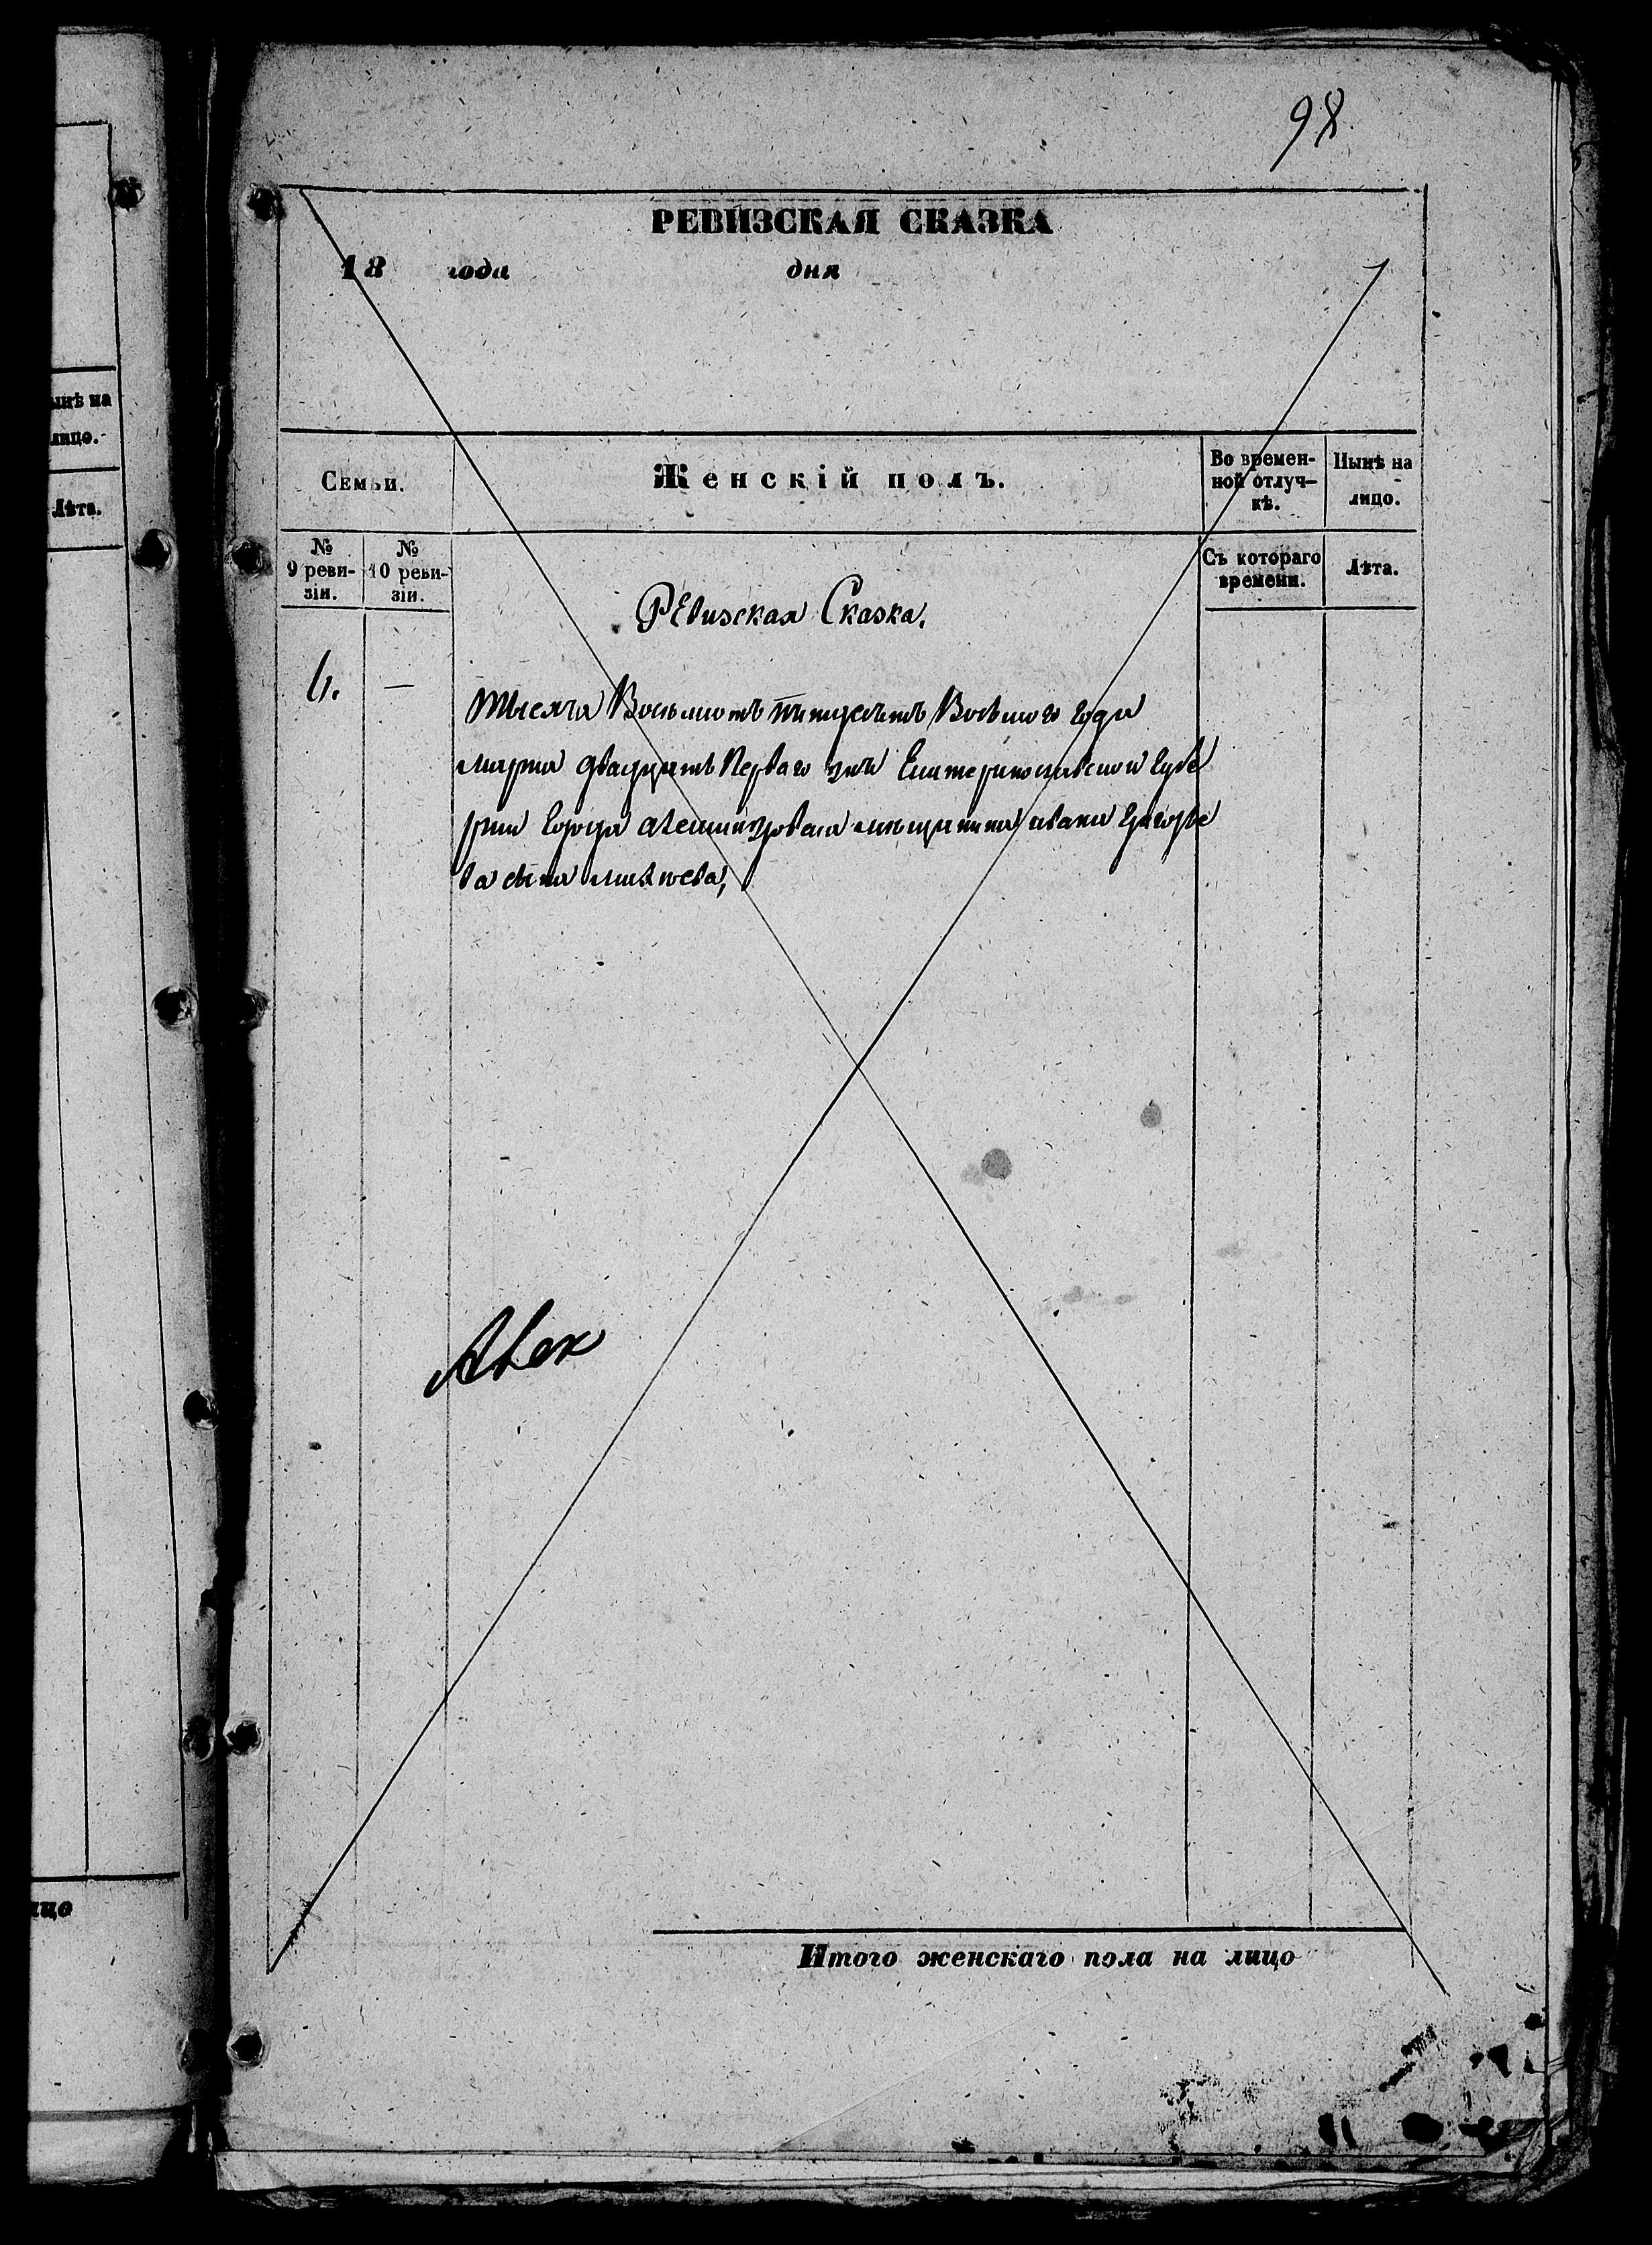 98
РЕВИЗСКАЯ СКАЗКА
18 года дня
Семьи.
Женскій полъ.
Во времен-
ной отлуч-
кѣ.
Нынѣ на
лицо.
№
9 реви-
зіи.
№
10 реви-
зіи.
Съ котораго
времени.
Лѣта.
Ревизская Сказка.
—
Тысяча Восьмсотъ пятдесятъ Восьмого года
марта двадцать Перваго дня Екатеринославской Губе
рнии Города Александровска мещанина ивана Григорье
ва сына
Alex
Итого женскаго пола на лицо
ынѣ на
лицо.
Лѣта.
ицо